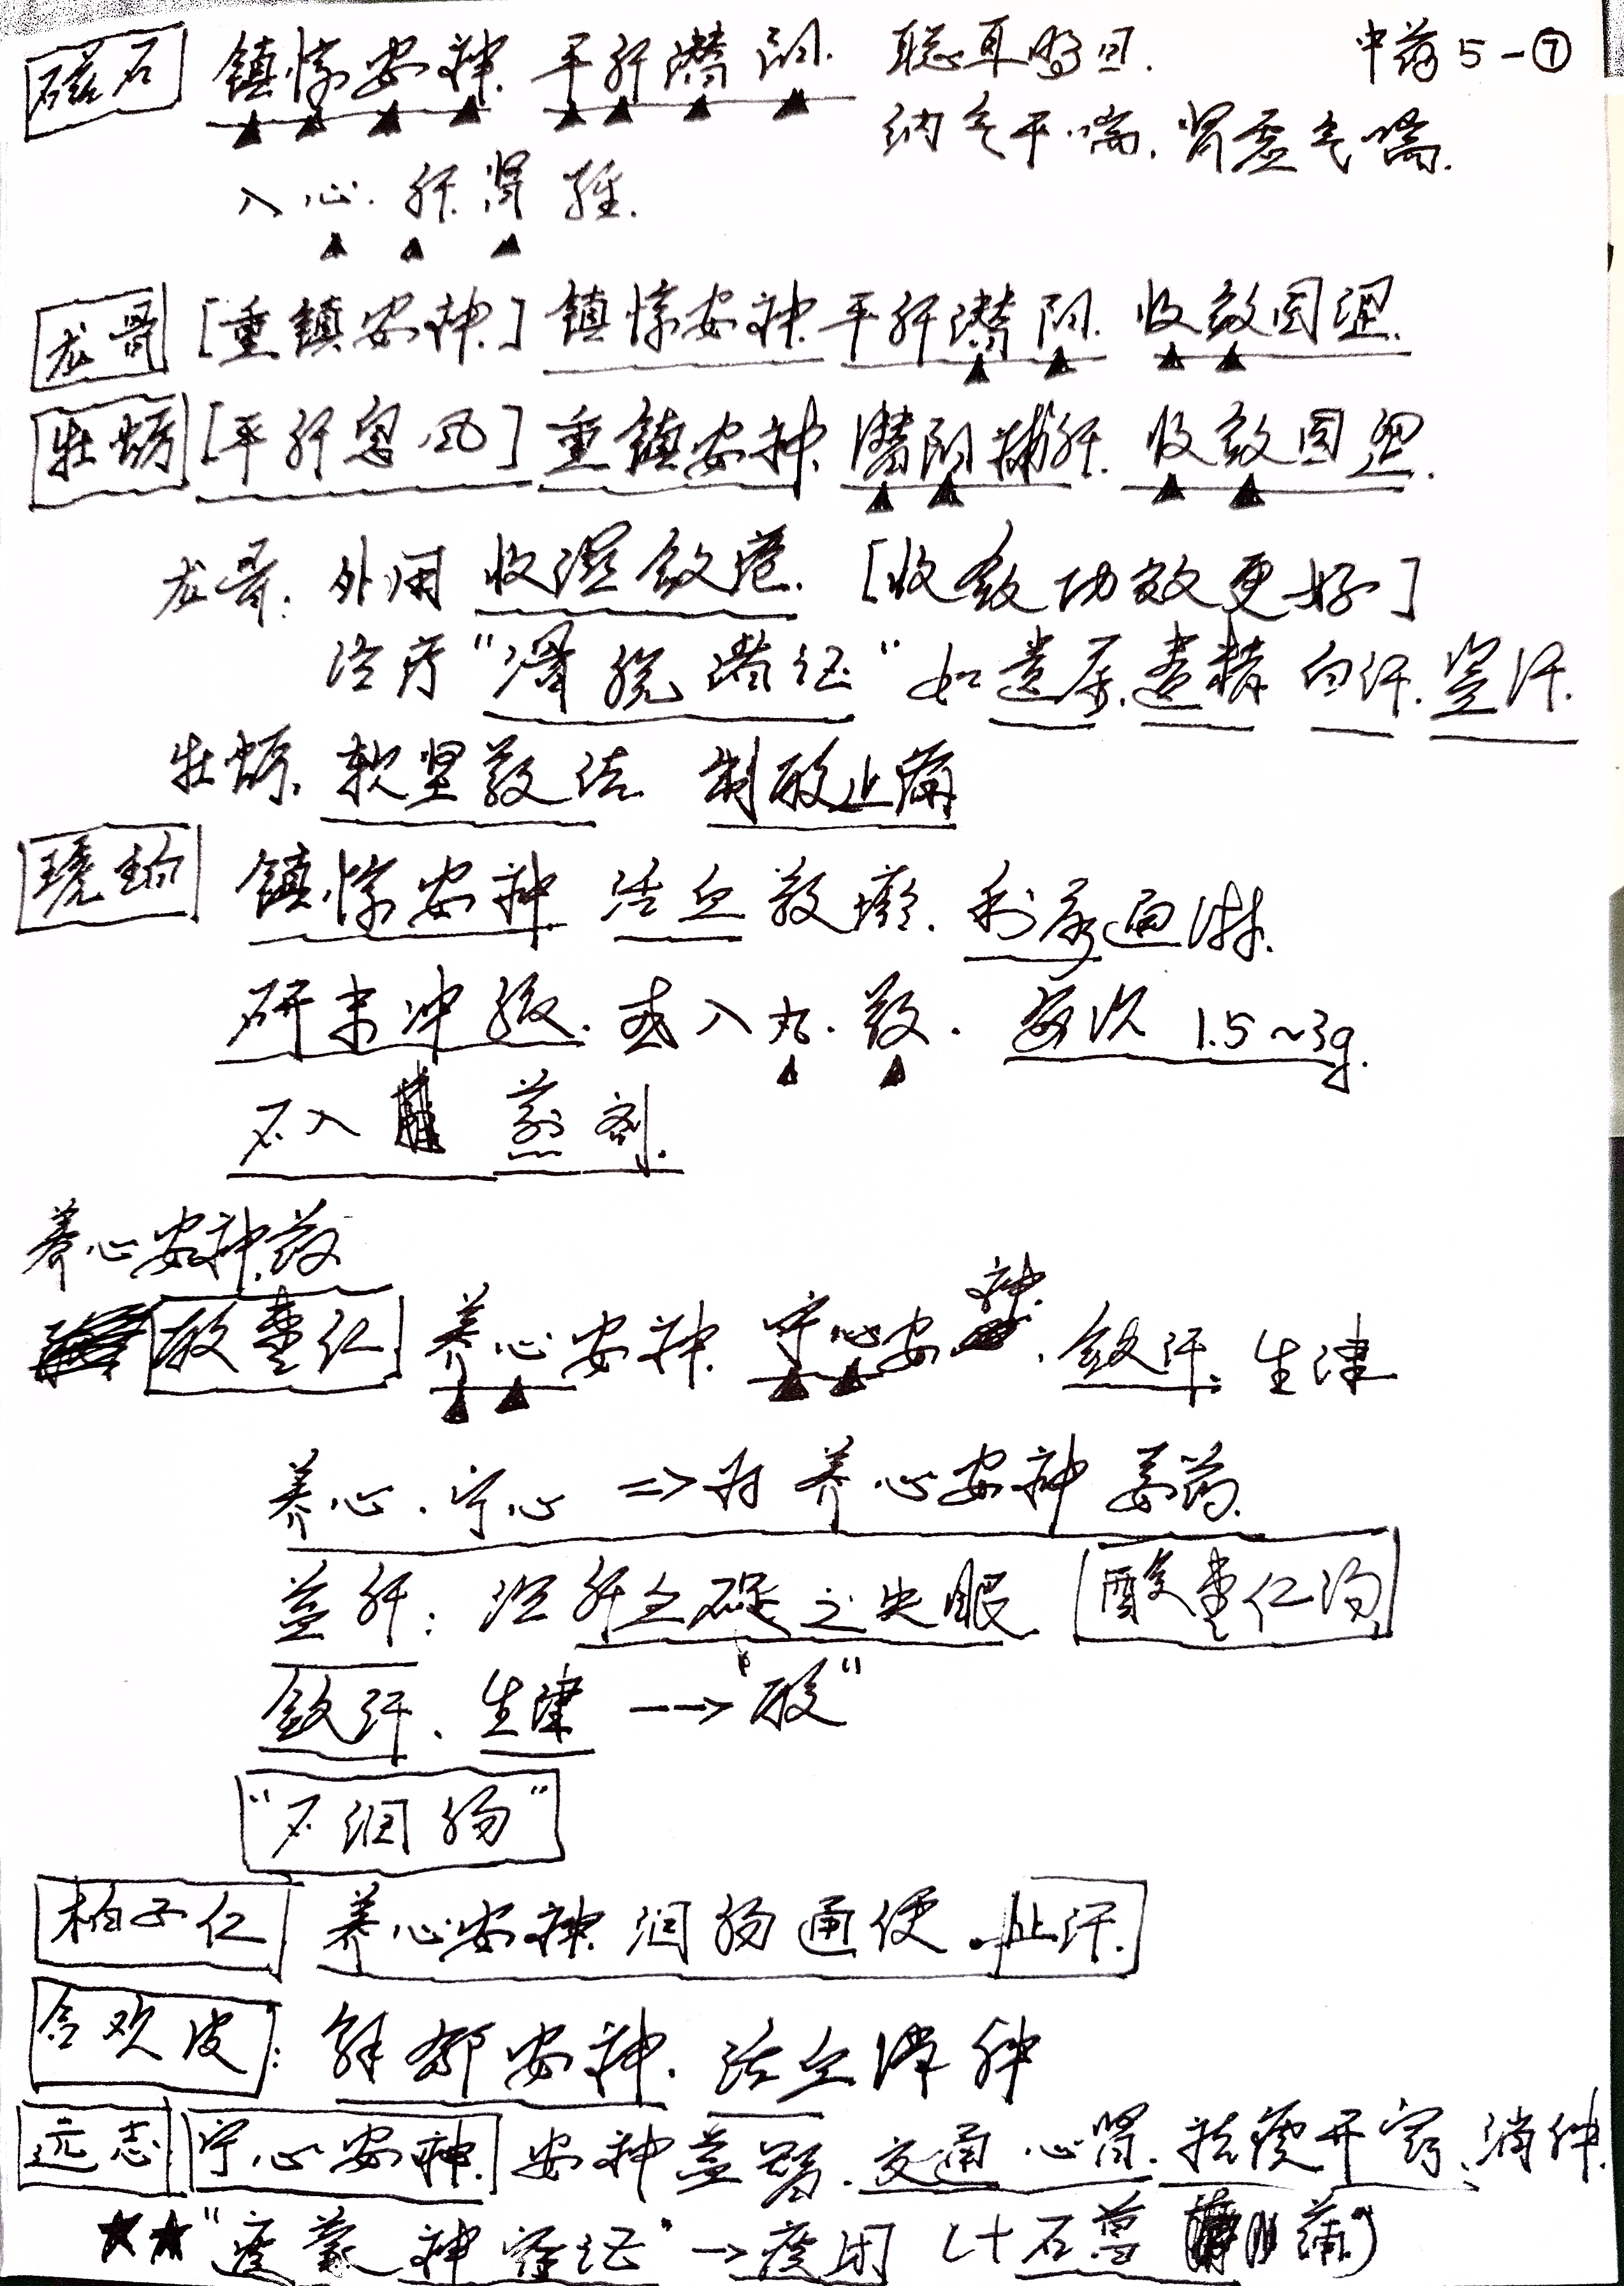 磁石 镇惊安神. 平肝潜阳. 聪耳明目. 中药5-⑦
纳气平喘. 肾虚气喘.
入心. 肝. 肾 经.
龙骨 [重镇安神.] 镇惊安神. 平肝潜阳. 收敛固涩.
牡蛎 [平肝息风] 重镇安神. 潜阳补阴. 收敛固涩.
龙骨: 外用 收湿敛疮. [收敛功效更好]
治疗"滑脱诸证" 如遗尿.遗精 自汗. 盗汗.
牡蛎. 软坚散结 制酸止痛
琥珀 镇惊安神 活血散瘀. 利尿通淋.
研末冲服. 或入丸. 散. 每次 1.5~3g.
不入 煎剂.
养心安神药
酸枣仁 养心安神. 宁心安神. 敛汗. 生津
养心. 宁心 => 为养心安神要药.
益肝: 治肝血虚之失眠 酸枣仁汤
敛汗. 生津 --> "酸"
"不润肠"
柏子仁 养心安神. 润肠通便. 止汗.
合欢皮: 解郁安神. 活血消肿
远志 宁心安神. 安神益智. 交通心肾. 祛痰开窍. 消肿.
★★ "痰蒙神窍证" → 痰闭 (+石菖蒲)